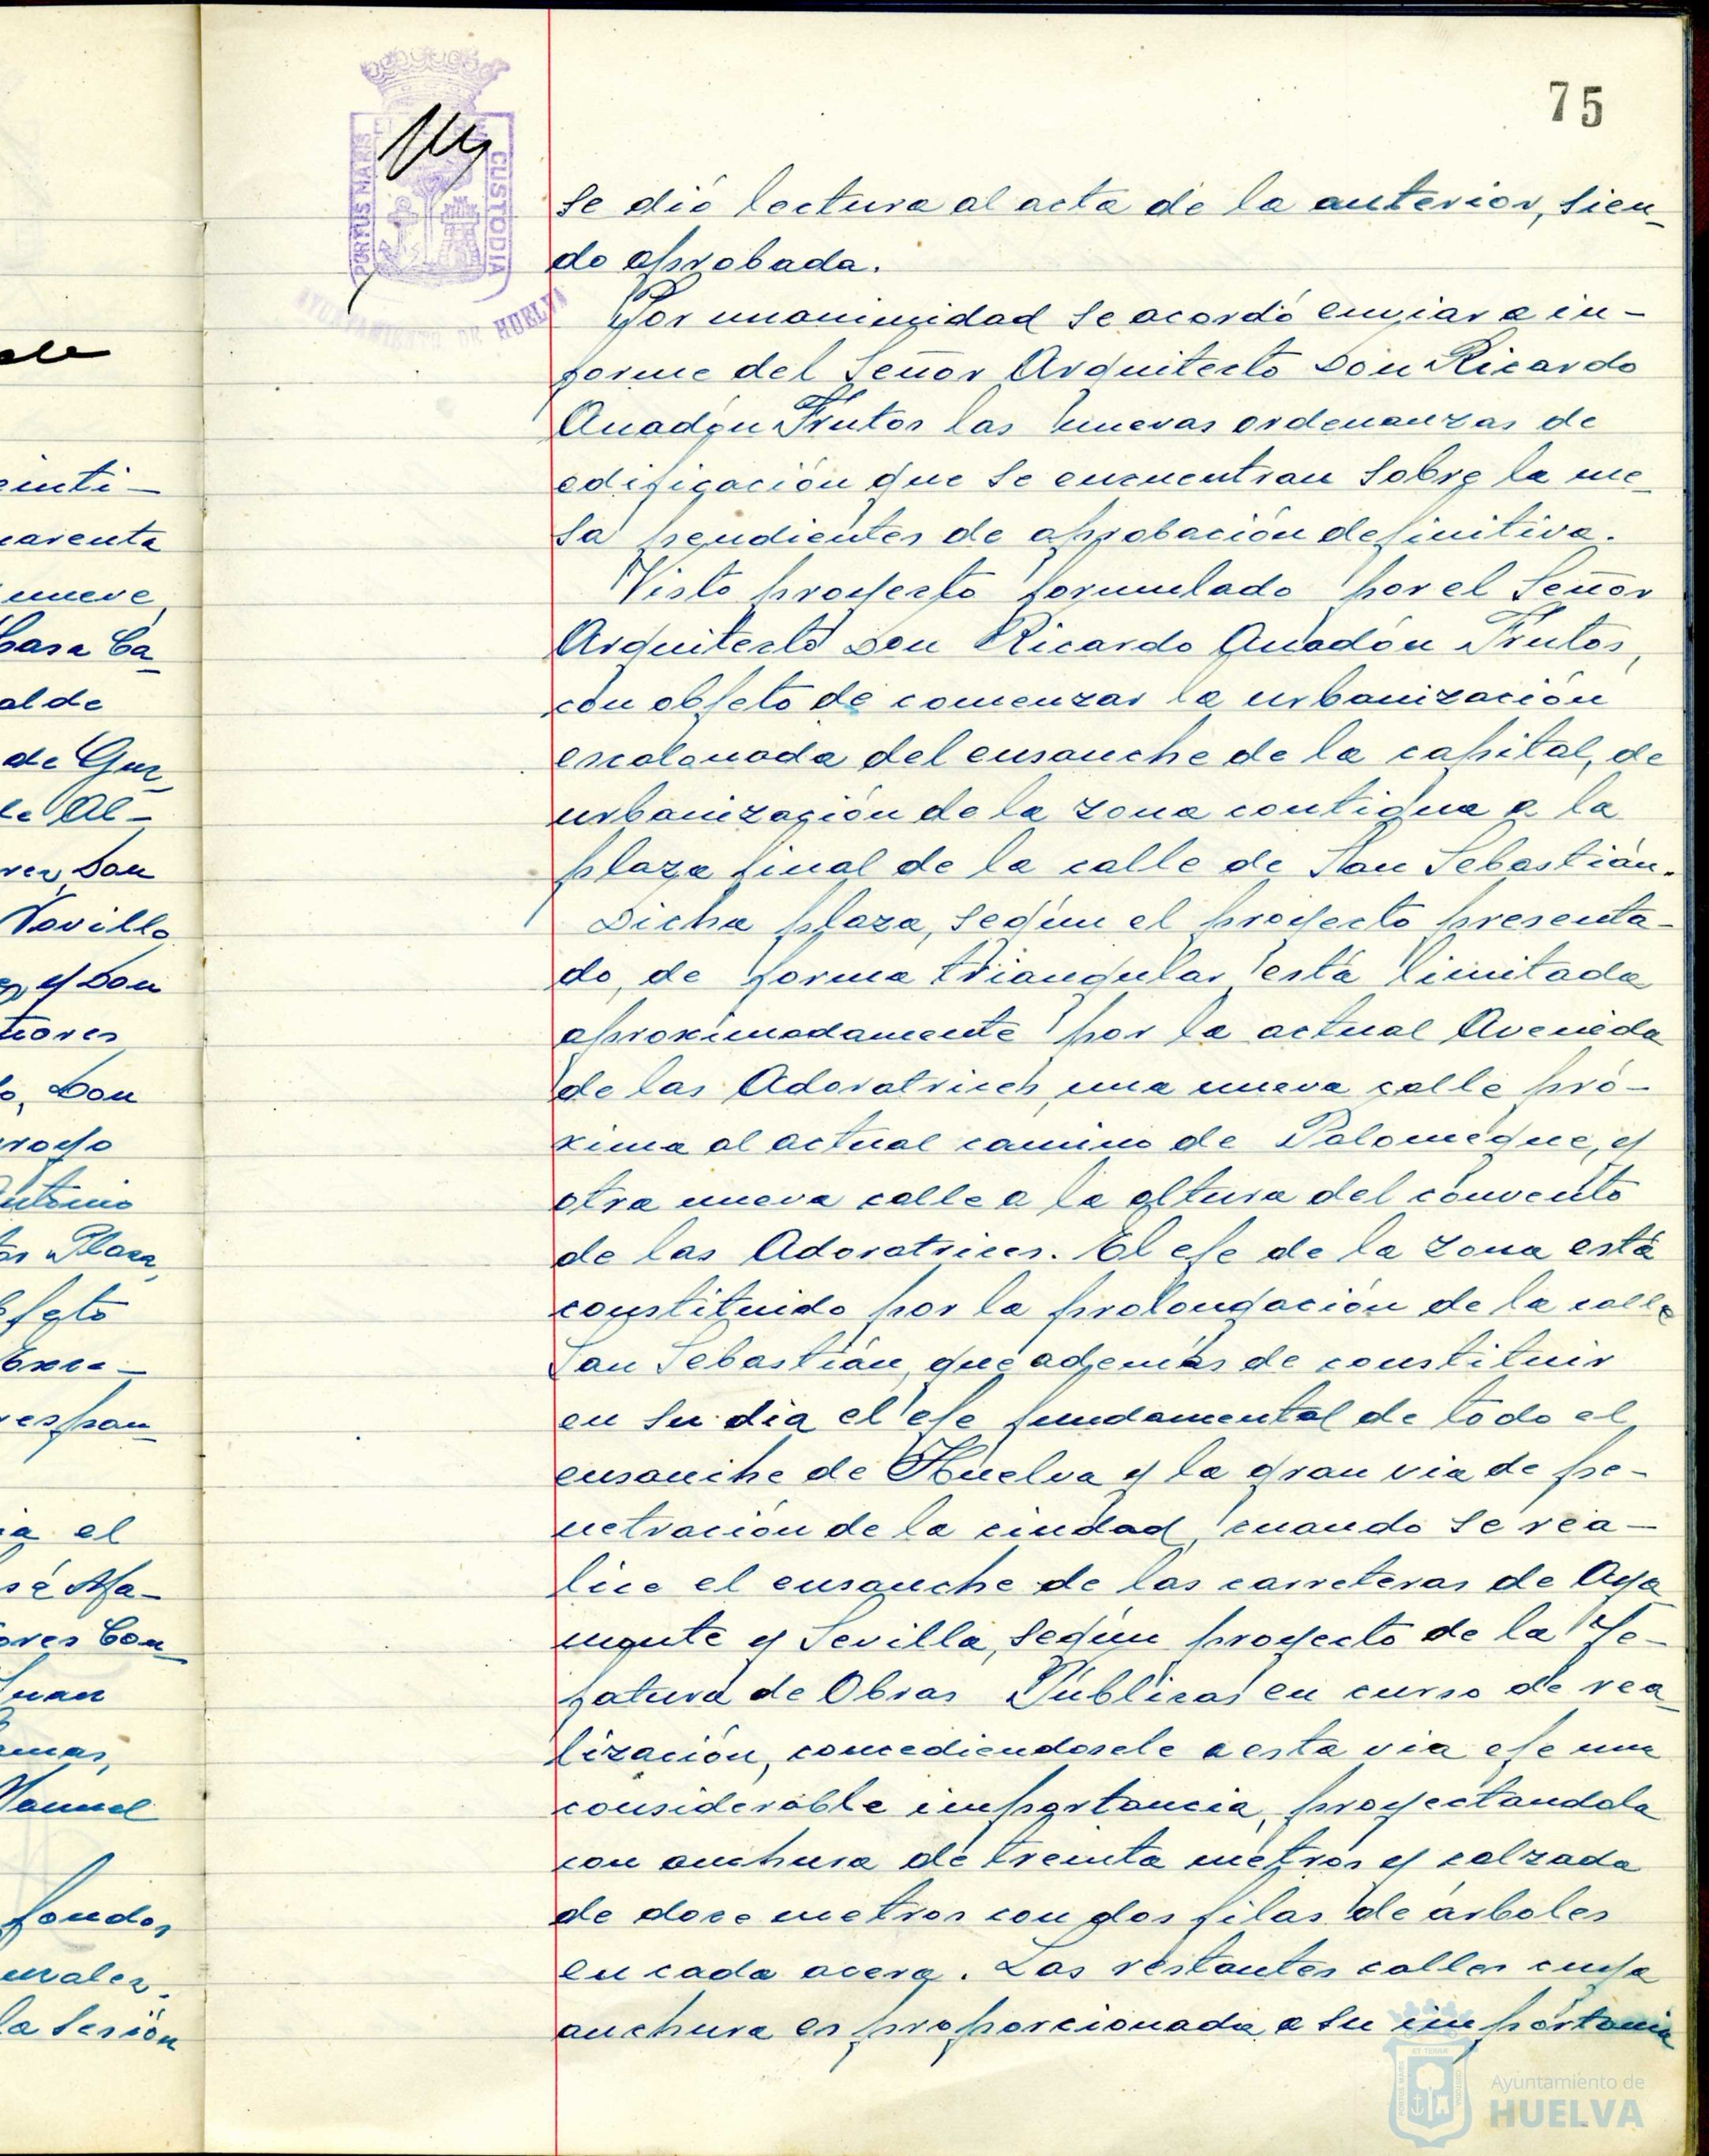 75
PORTUS MARIS
CUSTODIA
AYUNTAMIENTO DE HUELVA
se dió lectura al acta de la anterior, sien-
do aprobada.
Por unanimidad se acordó enviar a in-
forme del Señor Arquitecto Don Ricardo
Anadón Frutos las nuevas ordenanzas de
edificación que se encuentran sobre la me-
sa pendientes de aprobación definitiva.
Visto proyecto formulado por el Señor
Arquitecto Don Ricardo Anadón Frutos,
con objeto de comenzar la urbanización
escalonada del ensanche de la capital, de
urbanización de la zona contigua a la
plaza final de la calle de San Sebastián.
Dicha plaza, según el proyecto presenta-
do, de forma triangular está limitada
aproximadamente por la actual Avenida
de las Adoratrices, una nueva calle pró-
xima al actual camino de Palomeque, y
otra nueva calle a la altura del convento
de las Adoratrices. El eje de la zona está
constituido por la prolongación de la calle
San Sebastián, que además de constituir
en su dia el eje fundamental de todo el
ensanche de Huelva y la gran via de pe-
netración de la ciudad, cuando se rea-
lice el ensanche de las carreteras de Aya
monte y Sevilla, según proyecto de la Je-
fatura de Obras Públicas en curso de rea-
lización, concediendosele a esta via eje una
considerable importancia, proyectandola
con anchura de treinta metros y calzada
de doce metros con dos filas de árboles
en cada acera. Las restantes calles cuya
anchura es proporcionada a su importancia
einti-
arenta
nueve
Casa Ca-
alde
de Guz-
le Al-
Don
Novillo
y Don
Don
royo
Antonio
Plaza,
Exce-
espon-
ia el
sé Ma-
ores Con-
Juan
Manuel
fondos
la sesión
Ayuntamiento de
HUELVA